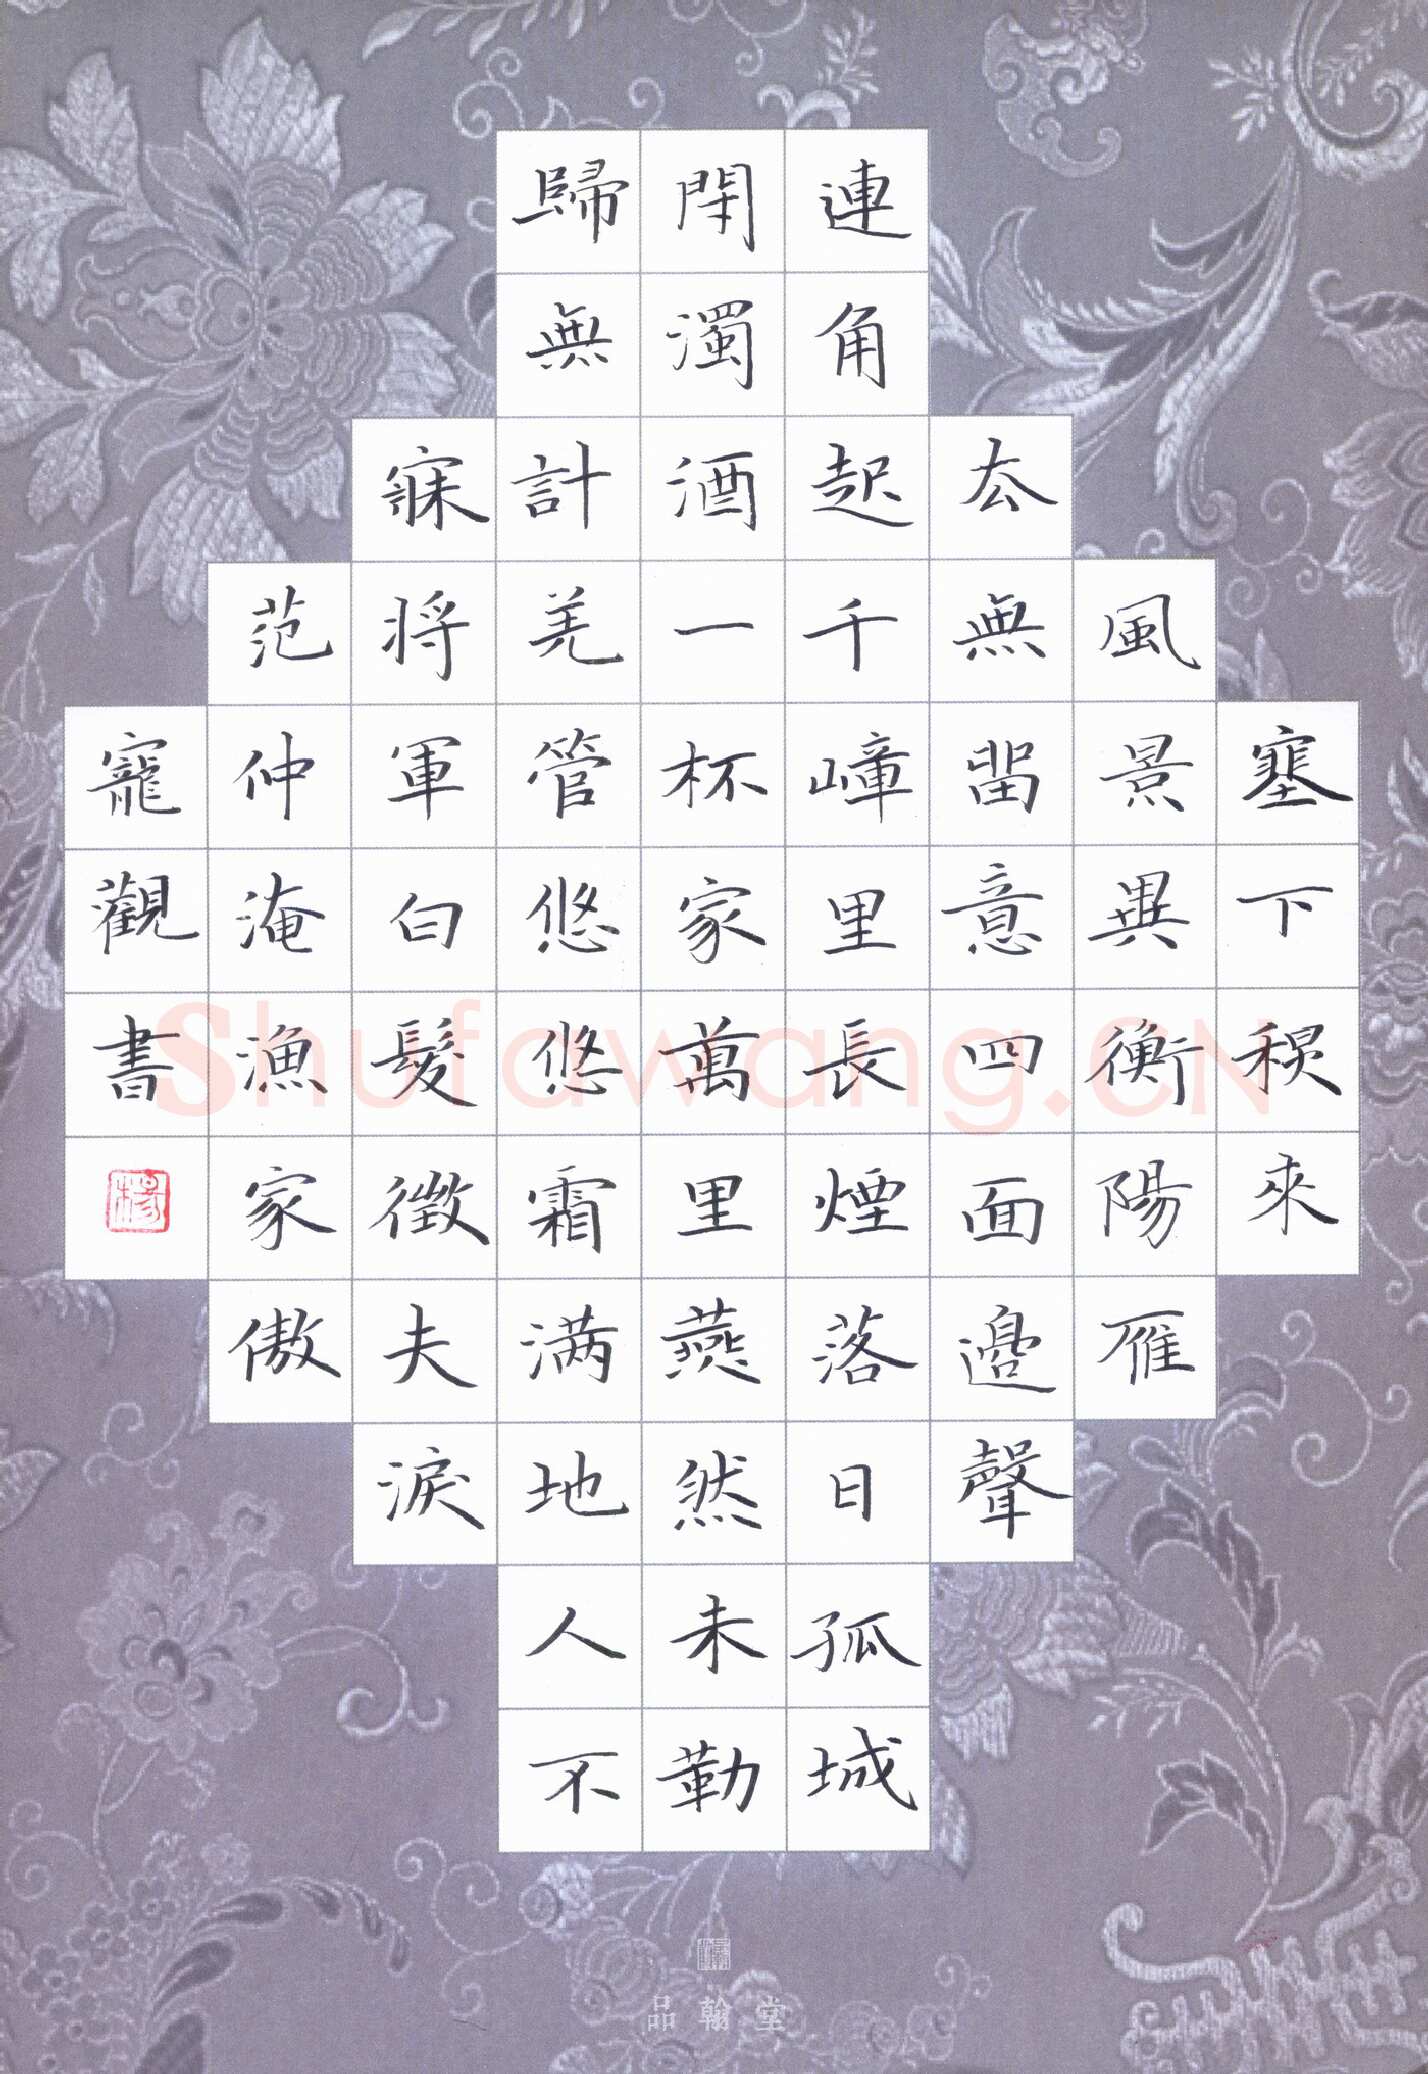 塞下秋來
風景異衡陽雁
去無留意四面邊聲
連角起千嶂里長煙落日孤城
閉濁酒一杯家萬里燕然未勒
歸無計羌管悠悠霜满地人不
寐将軍白髮徵夫淚
范仲淹漁家傲
寵觀書
楊
Shufawang.CN
品翰堂